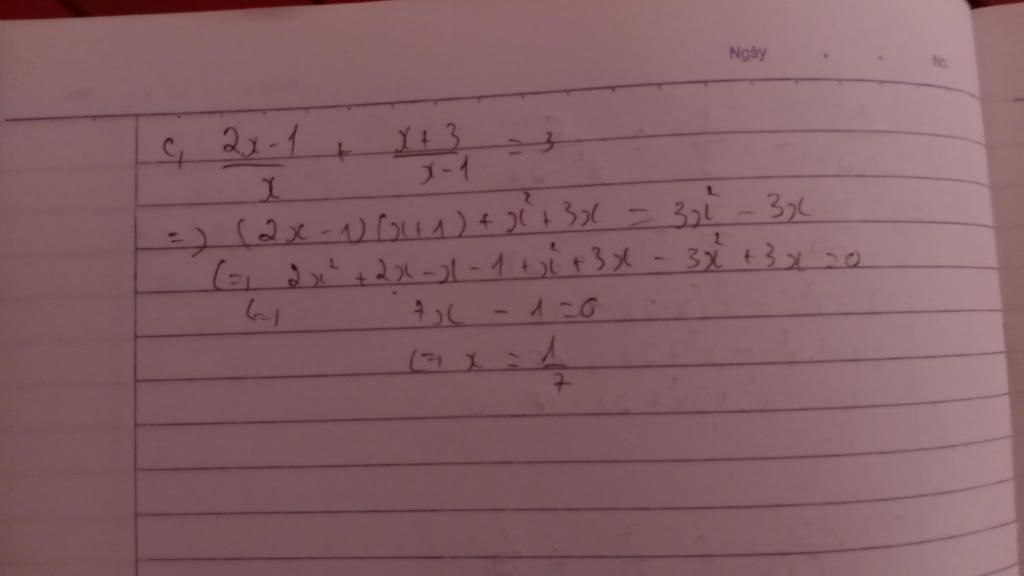 Ngày No.
c, (2x-1)/x + (x+3)/(x-1) = 3
=> (2x-1)(x+1) + x² + 3x = 3x² - 3x
<=> 2x² + 2x - x - 1 + x² + 3x - 3x² + 3x = 0
<=> 7x - 1 = 0
<=> x = 1/7